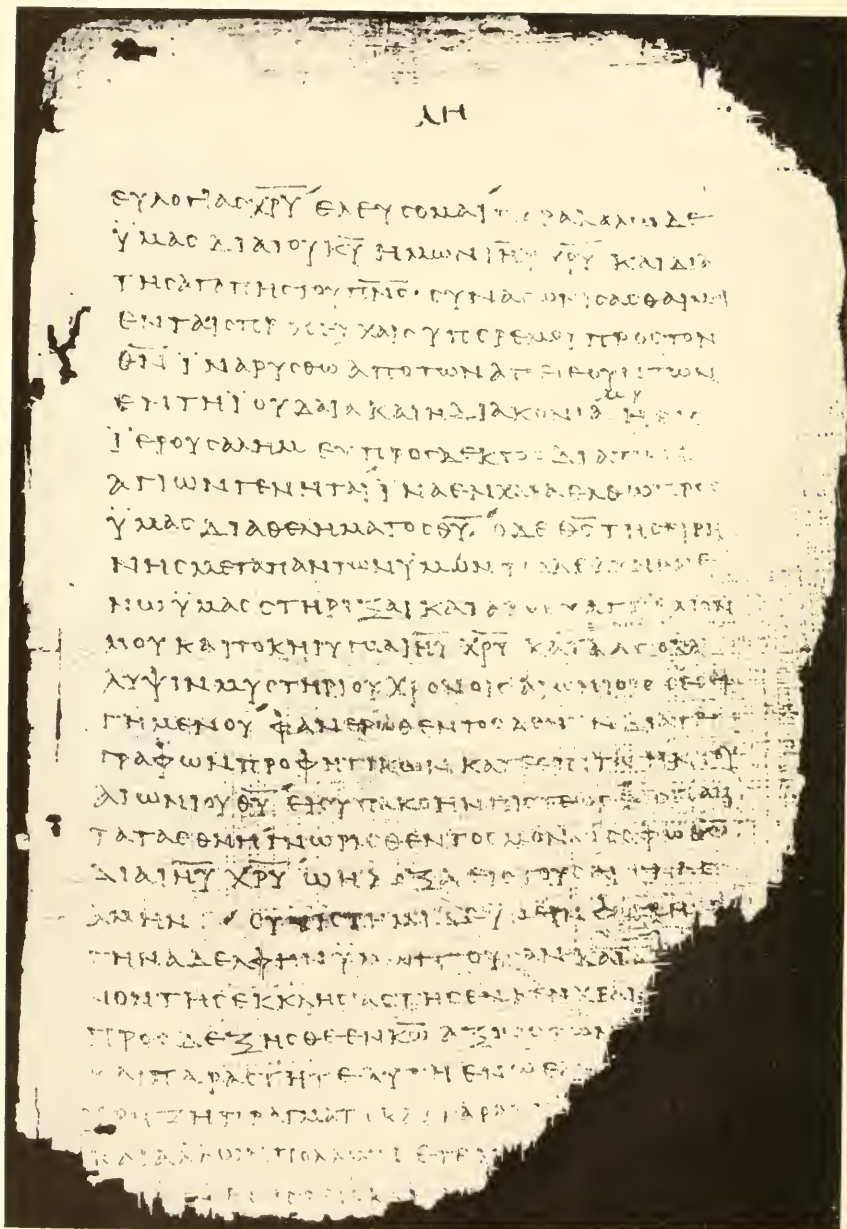 ΛΗ
ΕΥΛΟΓΙΑΣ ΧΡΥ ΕΛΕΥΣΟΜΑΙ ΠΑΡΑΚΑΛΩ ΔΕ
ΥΜΑΣ ΔΙΑ ΤΟΥ ΚΥ ΗΜΩΝ ΙΗΥ ΧΡΥ ΚΑΙ ΔΙΑ
ΤΗΣ ΑΓΑΠΗΣ ΤΟΥ ΠΝΣ ΣΥΝΑΓΩΝΙΣΑΣΘΑΙ ΜΟΙ
ΕΝ ΤΑΙΣ ΠΡΟΣΕΥΧΑΙΣ ΥΠΕΡ ΕΜΟΥ ΠΡΟΣ ΤΟΝ
ΘΝ ΙΝΑ ΡΥΣΘΩ ΑΠΟ ΤΩΝ ΑΠΕΙΘΟΥΝΤΩΝ
ΕΝ ΤΗ ΙΟΥΔΑΙΑ ΚΑΙ Η ΔΙΑΚΟΝΙΑ ΜΟΥ Η ΕΙΣ
ΙΕΡΟΥΣΑΛΗΜ ΕΥΠΡΟΣΔΕΚΤΟΣ ΔΙΑ
ΑΓΙΩΝ ΓΕΝΗΤΑΙ ΙΝΑ ΕΝ ΧΑΡΑ ΕΛΘΩ ΠΡΟΣ
ΥΜΑΣ ΔΙΑ ΘΕΛΗΜΑΤΟΣ ΘΥ Ο ΔΕ ΘΣ ΤΗΣ ΕΙΡΗ
ΝΗΣ ΜΕΤΑ ΠΑΝΤΩΝ ΥΜΩΝ ΤΩ ΔΕ ΔΥΝΑΜΕ
ΝΩ ΥΜΑΣ ΣΤΗΡΙΞΑΙ ΚΑΤΑ ΤΟ ΕΥΑΓΓΕΛΙΟΝ
ΜΟΥ ΚΑΙ ΤΟ ΚΗΡΥΓΜΑ ΙΗΥ ΧΡΥ ΚΑΤΑ ΑΠΟΚΑ
ΛΥΨΙΝ ΜΥΣΤΗΡΙΟΥ ΧΡΟΝΟΙΣ ΑΙΩΝΙΟΙΣ ΣΕΣΕΙ
ΓΗΜΕΝΟΥ ΦΑΝΕΡΩΘΕΝΤΟΣ ΔΕ ΝΥΝ ΔΙΑ ΤΕ
ΓΡΑΦΩΝ ΠΡΟΦΗΤΙΚΩΝ ΚΑΤ ΕΠΙΤΑΓΗΝ ΤΟΥ
ΑΙΩΝΙΟΥ ΘΥ ΕΙΣ ΥΠΑΚΟΗΝ ΠΙΣΤΕΩΣ ΕΙΣ ΠΑΝ
ΤΑ ΤΑ ΕΘΝΗ ΓΝΩΡΙΣΘΕΝΤΟΣ ΜΟΝΩ ΣΟΦΩ ΘΩ
ΔΙΑ ΙΗΥ ΧΡΥ Ω Η ΔΟΞΑ ΕΙΣ ΤΟΥΣ
ΑΜΗΝ ΣΥΝΙΣΤΗΜΙ ΔΕ ΥΜΕΙΝ ΦΟΙΒΗΝ
ΤΗΝ ΑΔΕΛΦΗΝ ΥΜΩΝ ΟΥΣΑΝ ΚΑΙ
ΝΟΝ ΤΗΣ ΕΚΚΛΗΣΙΑΣ ΤΗΣ ΕΝ ΚΕΝΧΡΕΑΙΣ
ΠΡΟΣΔΕΞΗΣΘΕ ΕΝ ΚΩ ΑΞΙΩΣ ΤΩΝ
ΚΑΙ ΠΑΡΑΣΤΗΤΕ ΑΥΤΗ ΕΝ Ω ΕΑΝ
ΧΡΗΖΗ ΠΡΑΓΜΑΤΙ ΚΑΙ ΓΑΡ
ΚΑΙ ΑΛΛΩΝ ΠΟΛΛΩΝ